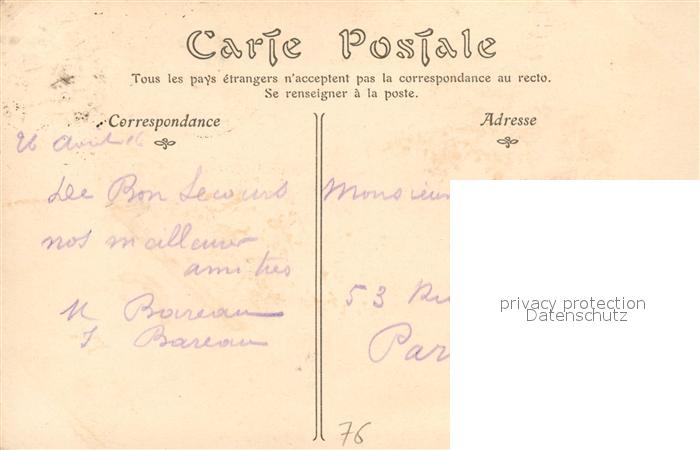 Carte Postale
Tous les pays étrangers n'acceptent pas la correspondance au recto.
Se renseigner à la poste.
Correspondance
Adresse
26 Avril 16
De Bon Secours
Monsieur
nos meilleures
amitiés
53 Ru
Bareau
Bareau
Par
privacy protection
Datenschutz
76